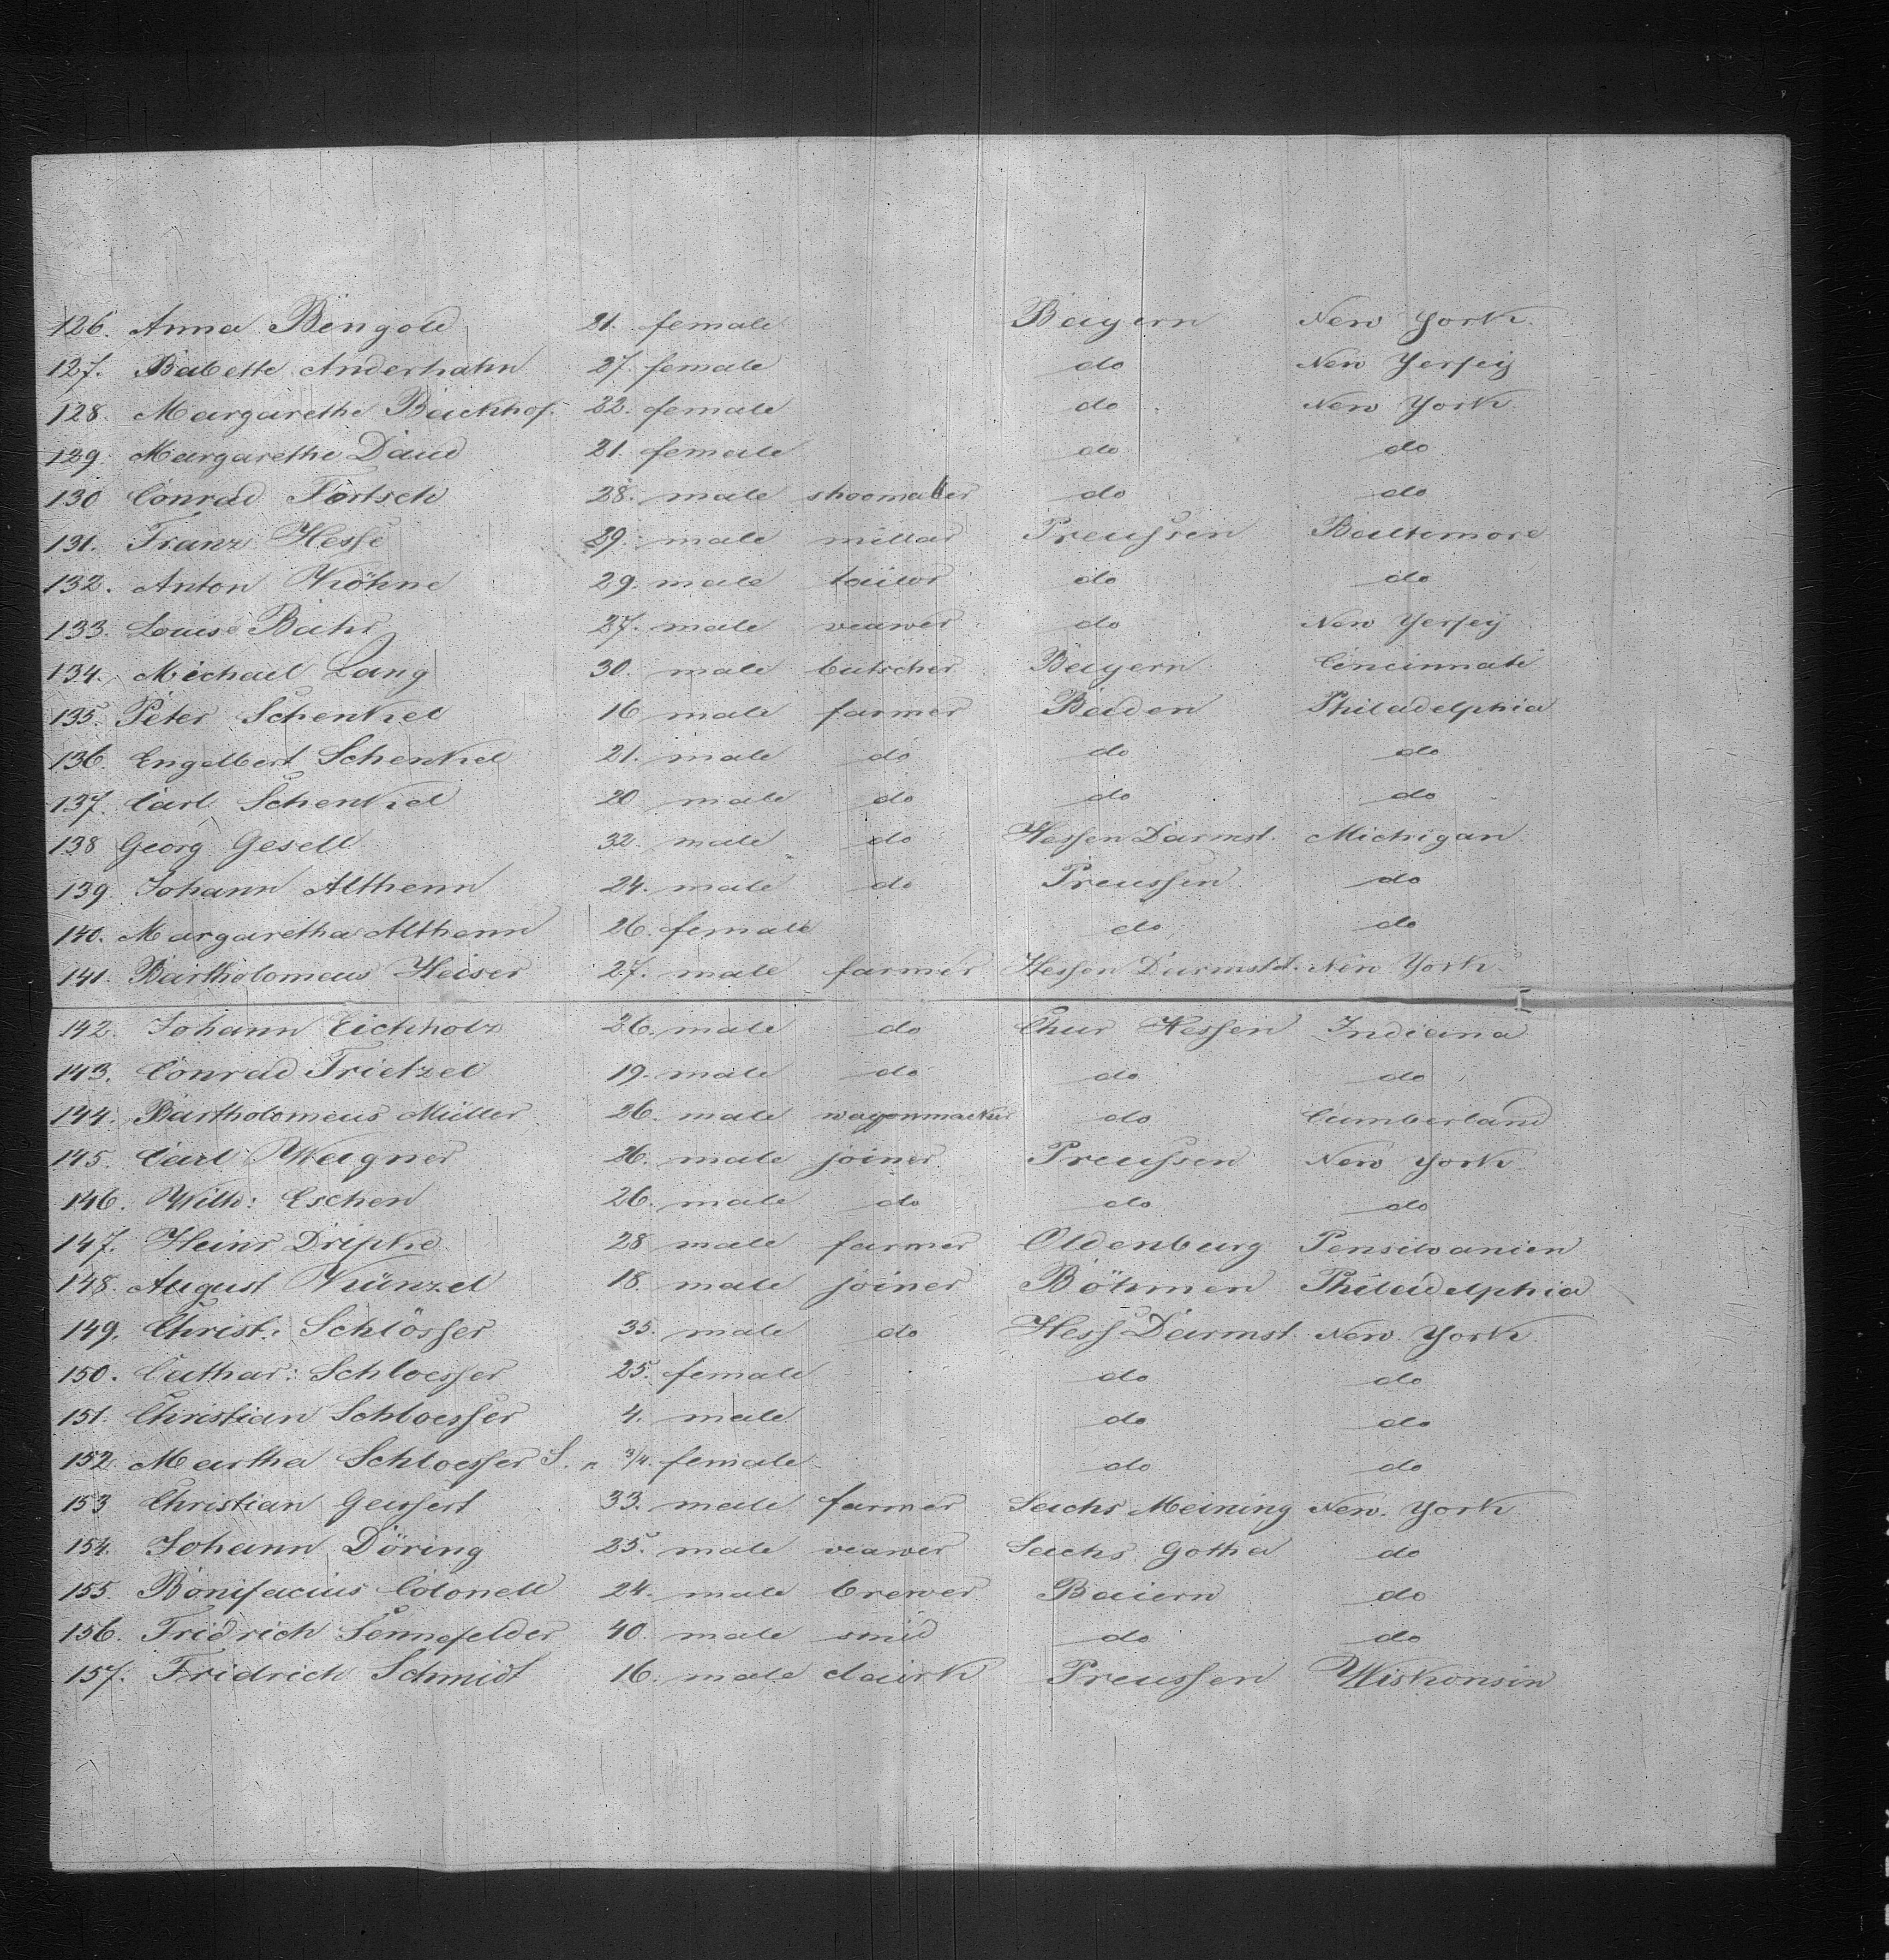 126. Anna Bengold 21. female Bayern New York.
127. Babette Anderhahn 27. female do New Yersey
128. Margarethe Backhof. 22. female do New York.
129. Margarethe Daud 21. female do do
130 Conrad Förtsch 28. male shoomaker do do
131. Franz Hesse 29. male millar Preussen Baltomore
132. Anton Kröhne 29. male tailor do do
133. Louis Bahr 27. male veawer do New Yersey
134. Michael Lang 30. male butscher Bayern Cincinnati
135. Peter Schenkel 16 male farmer Baden Philadelphia
136. Engelbert Schenkel 21. male do do do
137. Carl Schenkel 20 male do do do
138 Georg Gesell 32. male do Hessen Darmst. Michigan
139. Johann Althenn 24. male do Preussen do
140. Margaretha Althenn 26. female do do
141. Bartholomeus Heiser 27. male farmer Hessen Darmstdt. New York
142. Johann Eichholz 26. male do Chur Hessen Indiana
143. Conrad Trietzel 19. male do do do
144. Bartholomeus Müller 26. male wagenmacker do Cumberland
145. Carl Wagner 26. male joiner Preussen New York
146. Wilh: Eschen 26. male do do do
147. Heinr Dripke 28 male farmer Oldenburg Pensilvanien
148. August Künzel 18. male joiner Böhmen Philadelphia
149. Christ: Schlösser 35. male do Hess Darmst. New York
150. Cathar: Schloesser 25. female do do
151. Christian Schloesser 4. male do do
152. Martha Schloesser S. " 3/4. female do do
153 Christian Geissert 33. male farmer Sachs Meining New York
154. Johann Döring 25. male veawer Sachs Gotha do
155. Bonifacius Colonell 24. male brewer Baiern do
156. Fridrich Sennefelder 40. male smid do do
157. Fridrich Schmidt 16. male clairk Preussen Wiskonsin